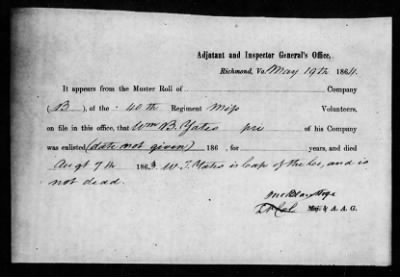 Adjutant and Inspector General's Office,
Richmond, Va. May 19th 1864.
It appears from the Muster Roll of Company
(B), of the 40th Regiment Miss Volunteers,
on file in this office, that Wm B. Yates pri of his Company
was enlisted (date not given) 186 , for years, and died
Augt 7th 1863. W. T. Yates is Capt of the Co, and is
not dead.
Lt Col & A. A. G.